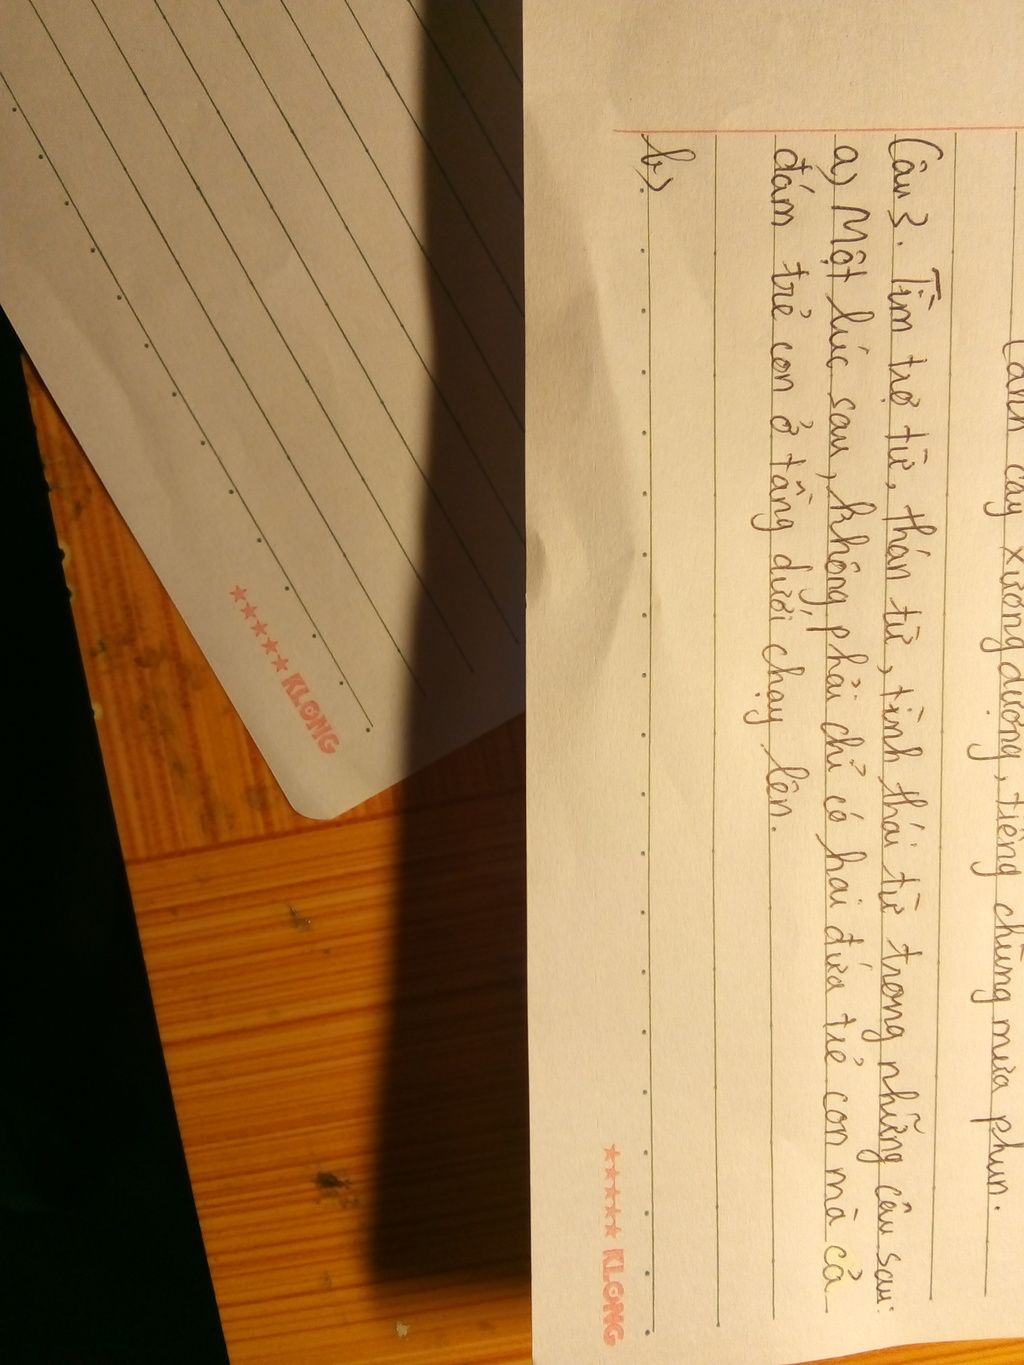 cành cây xương dương, tiếng chừng mưa phun.
Câu 3. Tìm trợ từ, thán từ, tình thái từ trong những câu sau:
a) Một lúc sau, không phải chỉ có hai đứa trẻ con mà cả
đám trẻ con ở tầng dưới chạy lên.
b)
★★★★★ KLONG
★★★★★ KLONG